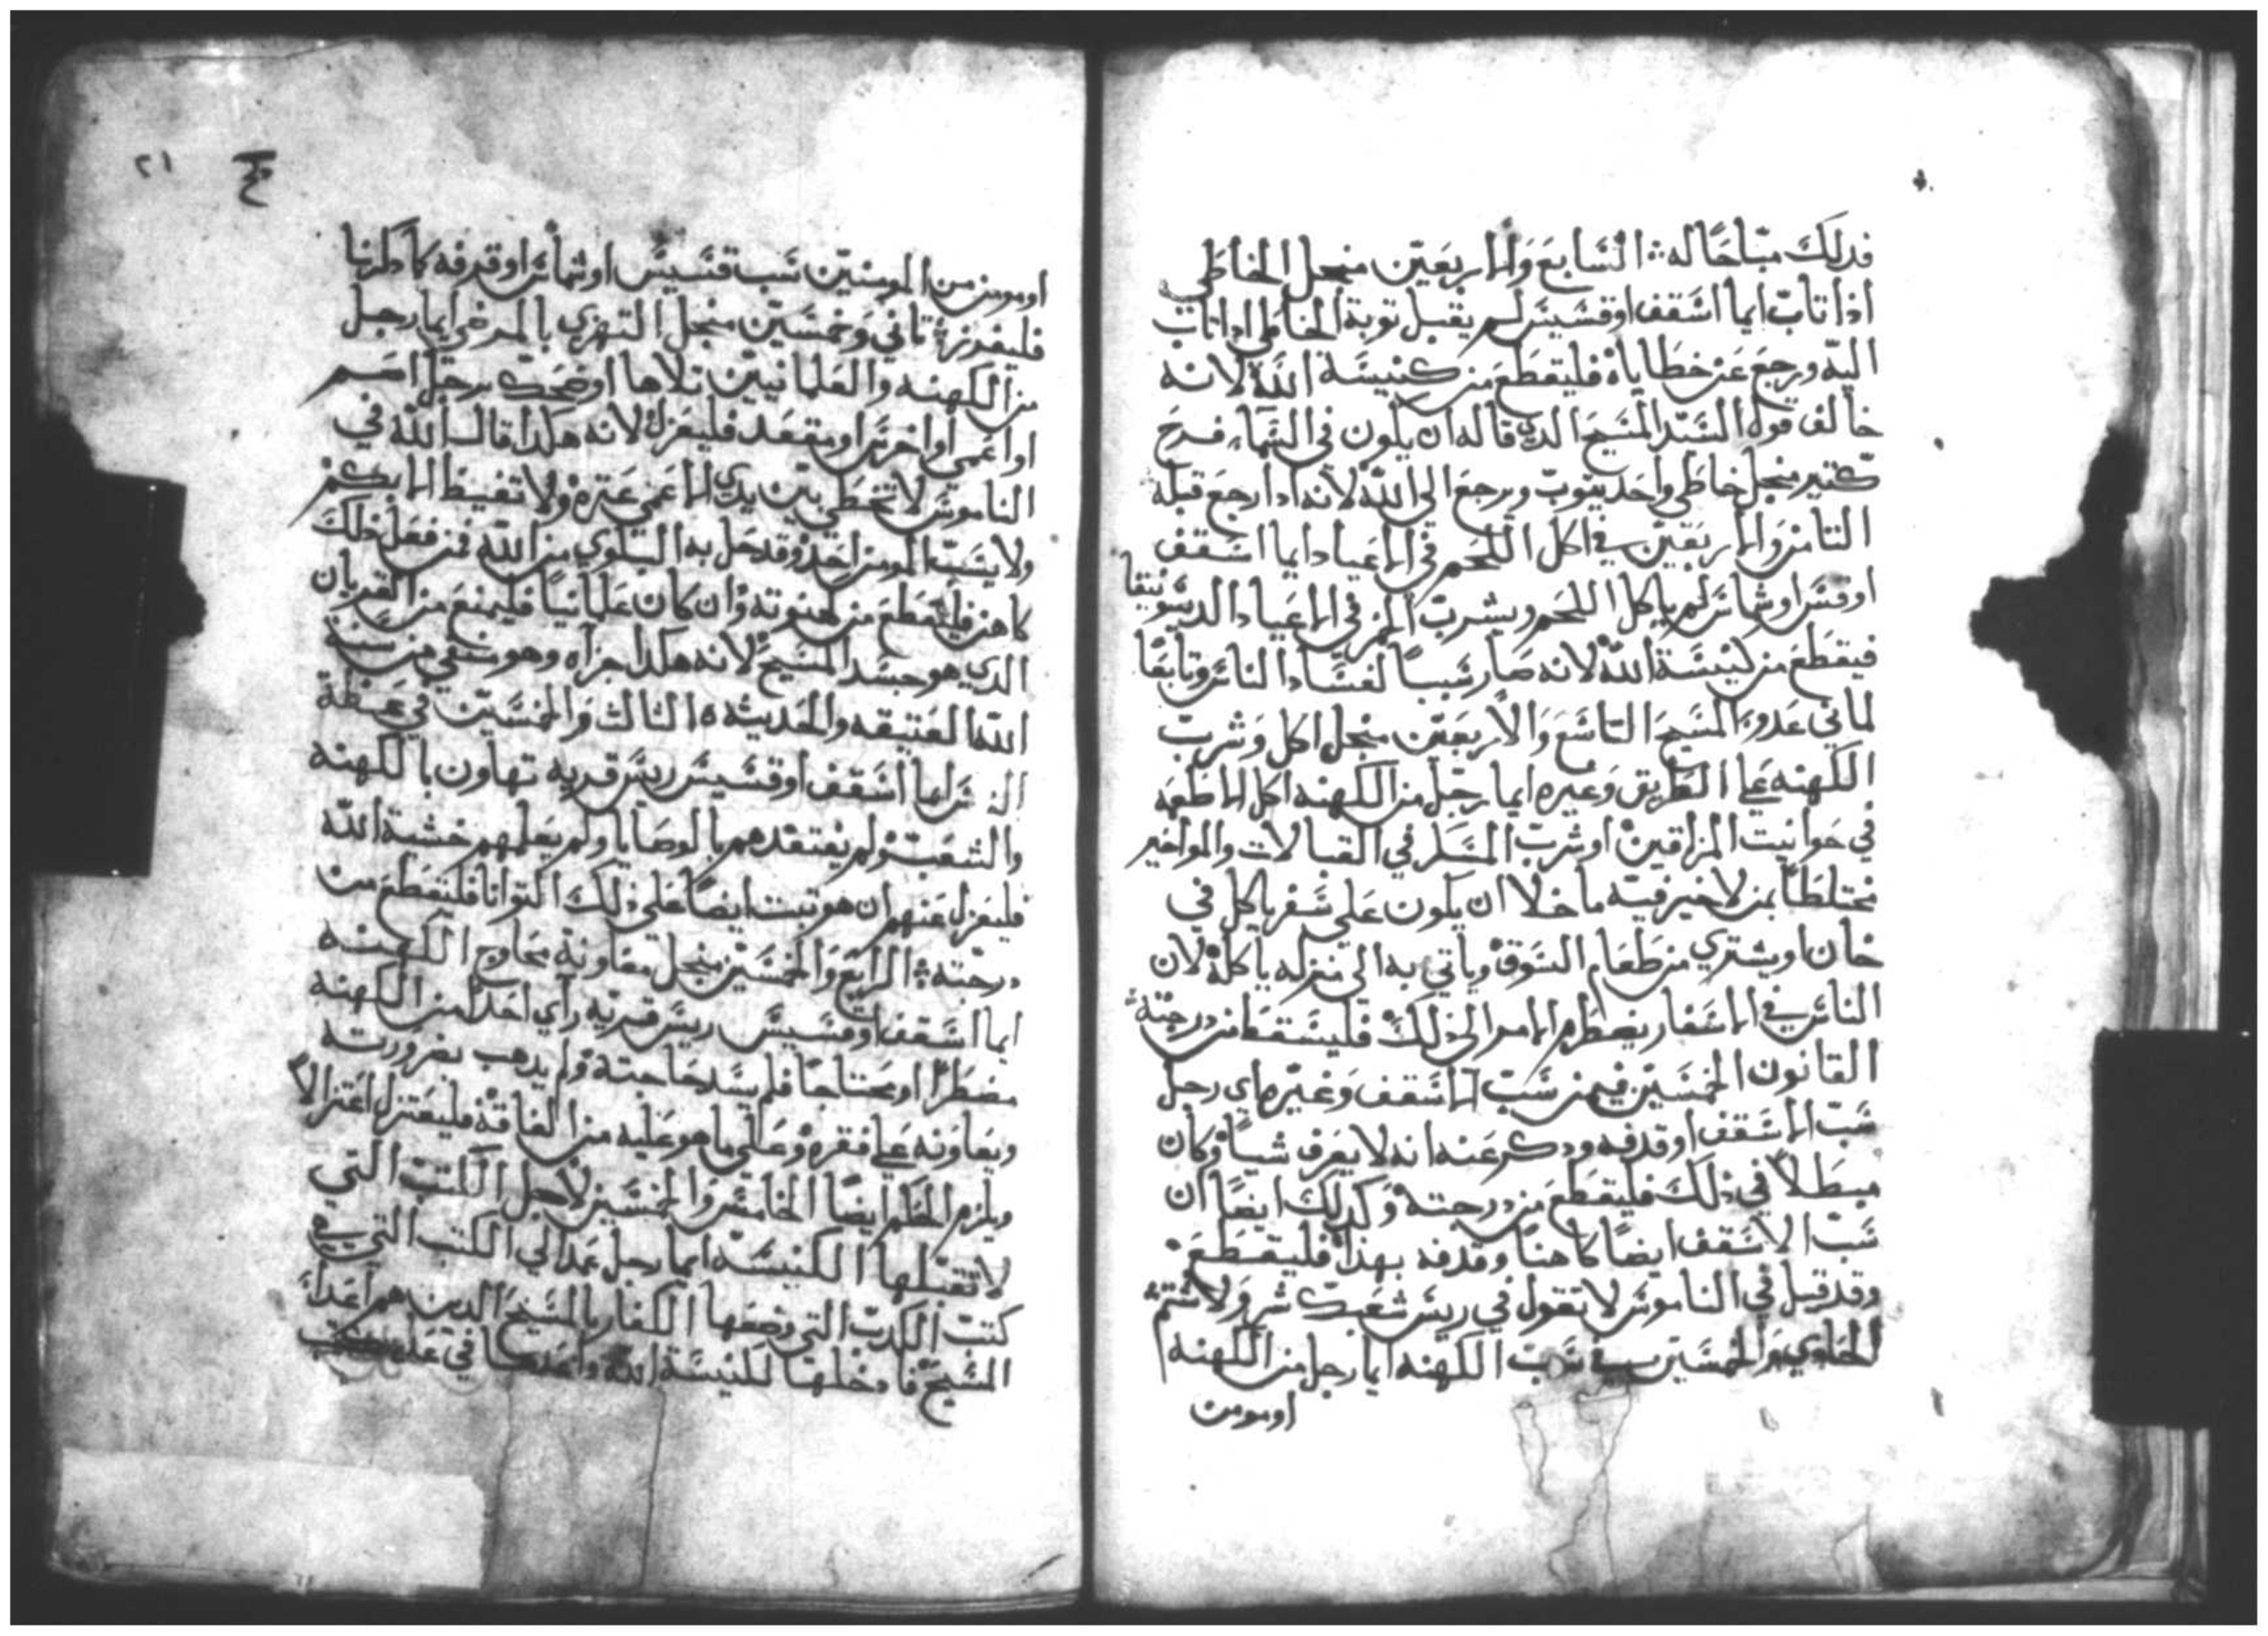 فدلك مباحا له ❖ السابع والاربعين منجل الخاطي
اذا تاب ايما اسقف او قسيس لم يقبل توبة الخاطي اذا تاب
اليه ورجع عن خطاياه فليقطع من كنيسة الله لانه
خالف قول السيد المسيح الدي قاله ان يكون في السماء فرح
كتير منجل خاطي واحد يتوب ويرجع الى الله لانه ادا رجع قبله
التامن والاربعين في اكل اللحم في الاعياد ايما اسقف
او قس او شماس لم ياكل اللحم ويشرب الخمر في الاعياد الديسونيقا
فيقطع من كنيسة الله لانه صار سببا لفساد الناس وتابعا
لماني عدو المسيح التاسع والاربعين منجل اكل وشرب
الكهنه على الطريق وغيره ايما رجل من الكهنه اكل الاطعمه
في حوانيت المزاقين او شرب المسكر في القبالات والمواخير
مختلطا بمن لا خير فيه ما خلا ان يكون على سفر ياكل في
خان او يشتري من طعام السوق وياتي به الى منزله ياكله لان
الناس في الاسفار يضطرهم الامر الى ذلك فليسقط من درجته
القانون الخمسين فيمن سب الاسقف وغيره اي رجل
سب الاسقف او قدفه ودكر عنه انه لا يعرف شيا وكان
مبطلا في ذلك فليقطع من درجته وكدلك ايضا ان
سب الاسقف ايضا كاهنا وقدفه بهدا فليقطع
وقد قيل في الناموس لا تقول في ريس شعبك شر ولا تشتمه
الحادي والخمسين في سب الكهنه ايما رجل من الكهنه
او مومن
٢١
او مومن من المومنين سب قسيس او شماس او قدفه كما دكرنا
فليفرز ❖ تاني وخمسين منجل التهزي بالمرضي ايما رجل
من الكهنه والعلمانيين تلاها او ضحك برجل اصم
او اعمي او اخرس او مقعد فليعزل لانه هكدا قال الله في
الناموس لا تحطي بين يدي الاعمى عترة ولا تغيظ الابكم
ولا يسب المومن احد وقد حل به البلوي من الله فمن فعل ذلك
كاهن فليقطع من كهنوته وان كان علمانيا فليمنع من القربان
الدي هو جسد المسيح لانه هكدا جزاه وهو منفي من سنة
الله العتيقه والحديثه ه التالت والخمسين في عظة
ايما اسقف او قسيس ريس قريه تهاون بالكهنه
والشعب ولم يفتقدهم بالوصايا ولم يعلمهم خشية الله
فليعزل عنهم ان هو تبت ايضا على ذلك التوانا فليقطع من
درجته ❖ الرابع والخمسين منجل معاونة محاوج الكهنه
ايما اسقف او قسيس ريس قريه راي احدا من الكهنه
مضطرا او محتاجا فلم يسد حاجته ولم يدهب بضرورته
ويعاونه على فقره وعلى ما هو عليه من الفاقه فليعتزل اعتزالا
ويلزم الظلم ايضا الخامس والخمسين لاجل الكتب التي
لا تقبلها الكنيسه ايما رجل عمد الى الكتب التي هي
كتب الكدب التي وضعها الكفار بالمسيح الدين هم اعداء
المسيح فادخلها لكنيسة الله واعدها في